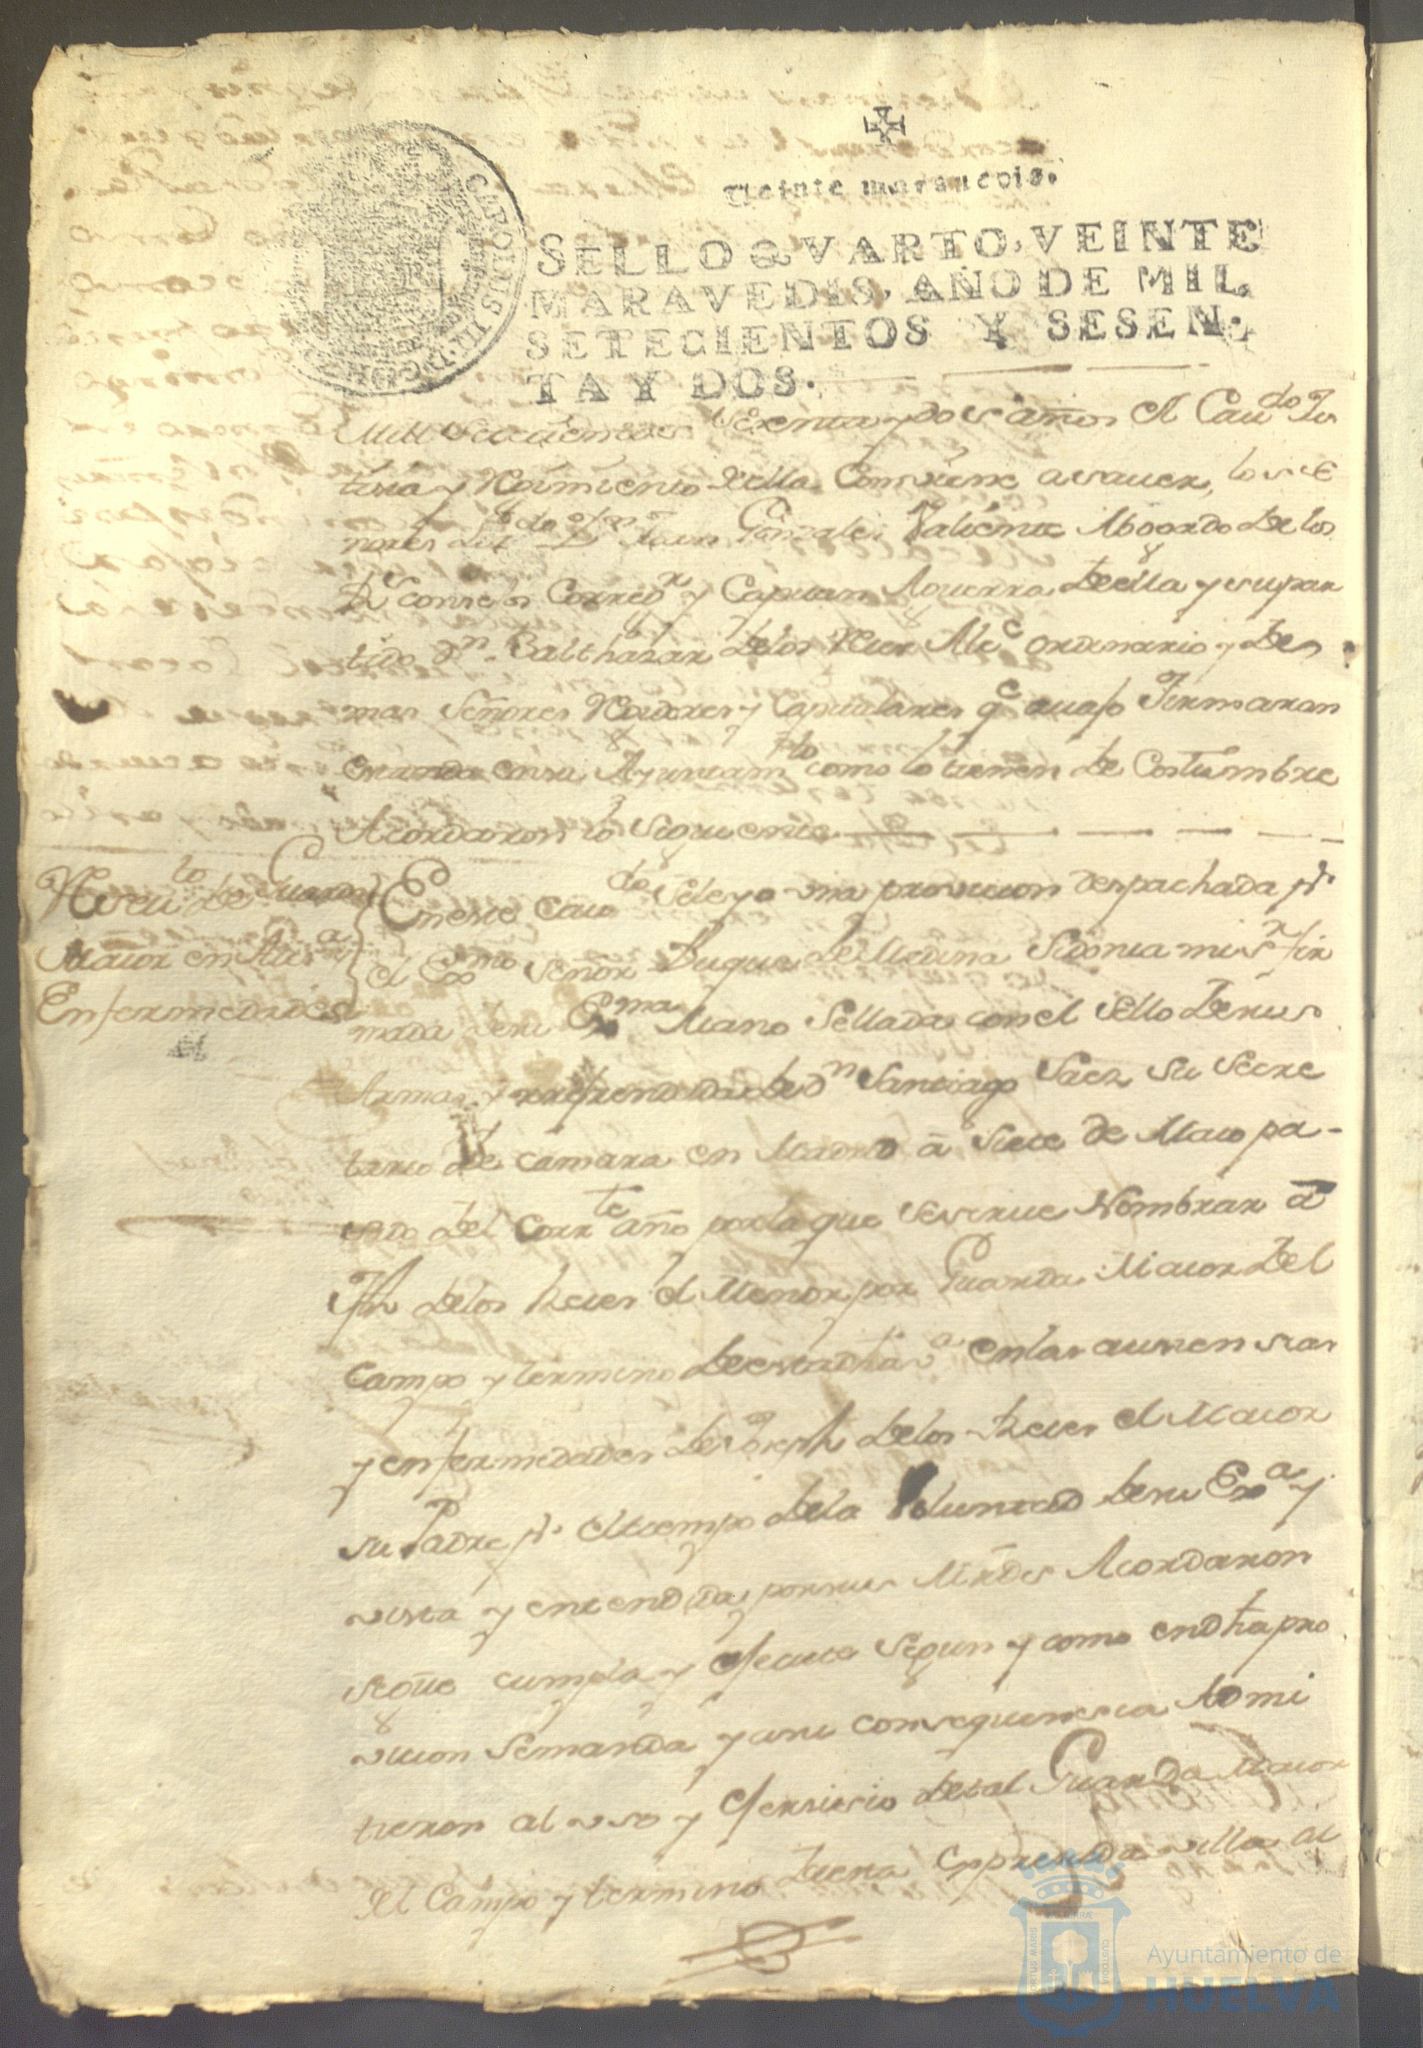 Veinte maravedis.
CAROLUS III D G
SELLO QVARTO, VEINTE
MARAVEDIS, AÑO DE MIL
SETECIENTOS Y SESEN-
TA Y DOS.
Mill setecientos sesenta y dos años el Caudo Jus
ticia y Reximiento della Combiene a sauer, los se
ñores Lizdo Dn Juan Gonzalez Valiente Abogado de los
Rs consejos Corredr y Capitan Aguerra de ella y su par
tido Dn Balthazar de los Reies Alce ordinario y de
mas Señores Rexidores y Capitulares qe auajo Firmaron
estando en su Ayuntamto como lo tienen de Costumbre
Acordaron lo siguiente
Receuto de Guarda
Maior en Aus.a
Enfermedades
En este Caudo se leyo una provicion despachada pr
el Exmo señor Duque de Medina Sidonia mi sr fir
mada de su Exma Mano Sellada con el Sello de sus
Armas y refrendada de Dn Santiago Saez su Secre
tario de camara en Madrid a siete de Maio pa-
sado del Corrte año por la que se sirue Nombrar a
Jph de los Reies el Menor por Guarda Maior del
Campo y termino de esta dha va en las ausensias
y enfermedades de Joseph de los Reies el Maior
su Padre pr el tiempo de la Voluntad de su Exa y
vista y entendida por sus Mrdes Acordaron
se gue cumpla y efecute segun y como en dha pro
vicion se manda y a su consequensia Admi
tieron al uso y efersisio de tal Guarda Maior
del Campo y termino de esta expresada villa al
Ayuntamiento de
HUELVA